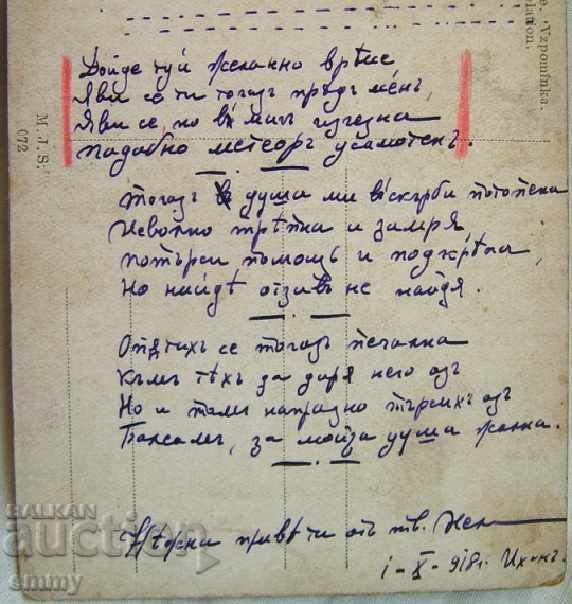 Дойде туй желанно врѣме
Яви се ти тогазъ прѣдъ менъ,
Яви се, но въ мигъ изчезна
подобно метеоръ усамотенъ.
Тогазъ душа ми въ скърби потопена
Неволно трѣпна и замря,
потърси помощь и подкрѣпа,
Но нийдѣ отзивъ не найдя.
Опѫтихъ се тогазъ печална
Къмъ тѣхъ да даря него азъ
Но и тамъ напразно търсихъ азъ
Балсамъ, за мойта душа жална.
Искрени привѣти отъ тв.
1-X-918г.
... e. Vzpomínka.
M. J. S.
072
BALKAN
auction
emmy